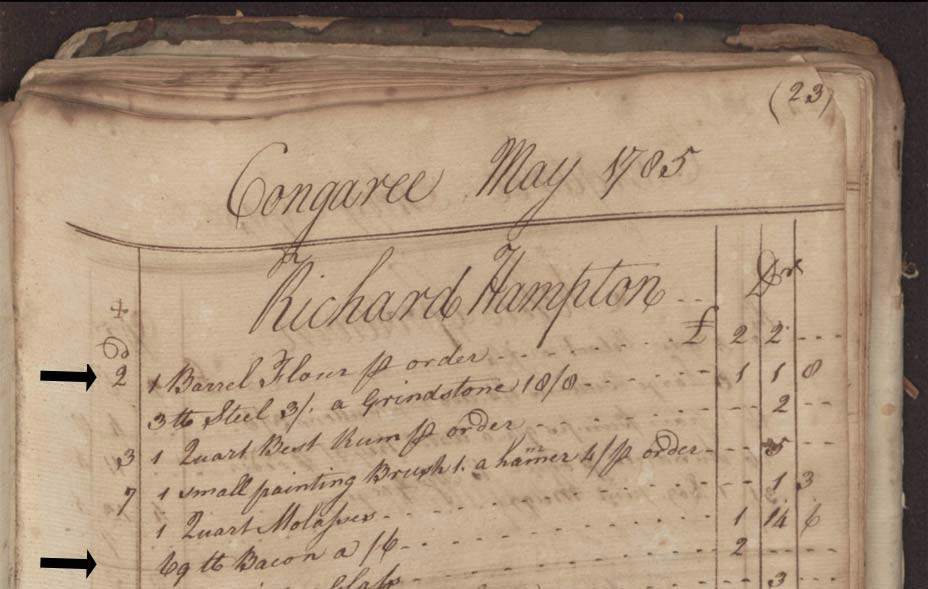 (23)
Congaree May 1785
Richard Hampton Dr
2 1 Barrel Flour ⅌ order £ 2 2
3 lb Steel 3/. a Grindstone 18/8 1 1 8
3 1 Quart Best Rum ⅌ order 2
7 1 small painting Brush 1. a hamer 4/ ⅌ order 5
1 Quart Molasses 1 3
69 lb Bacon a /6 1 14 6
Glass 2
3